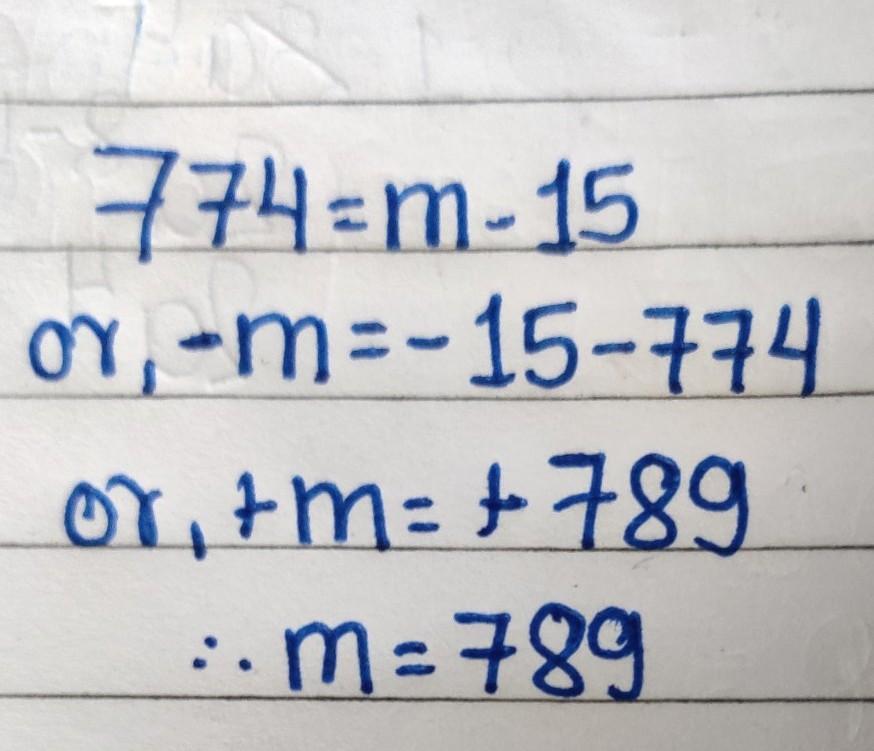 774=m-15
or,-m=-15-774
or,+m=+789
∴m=789